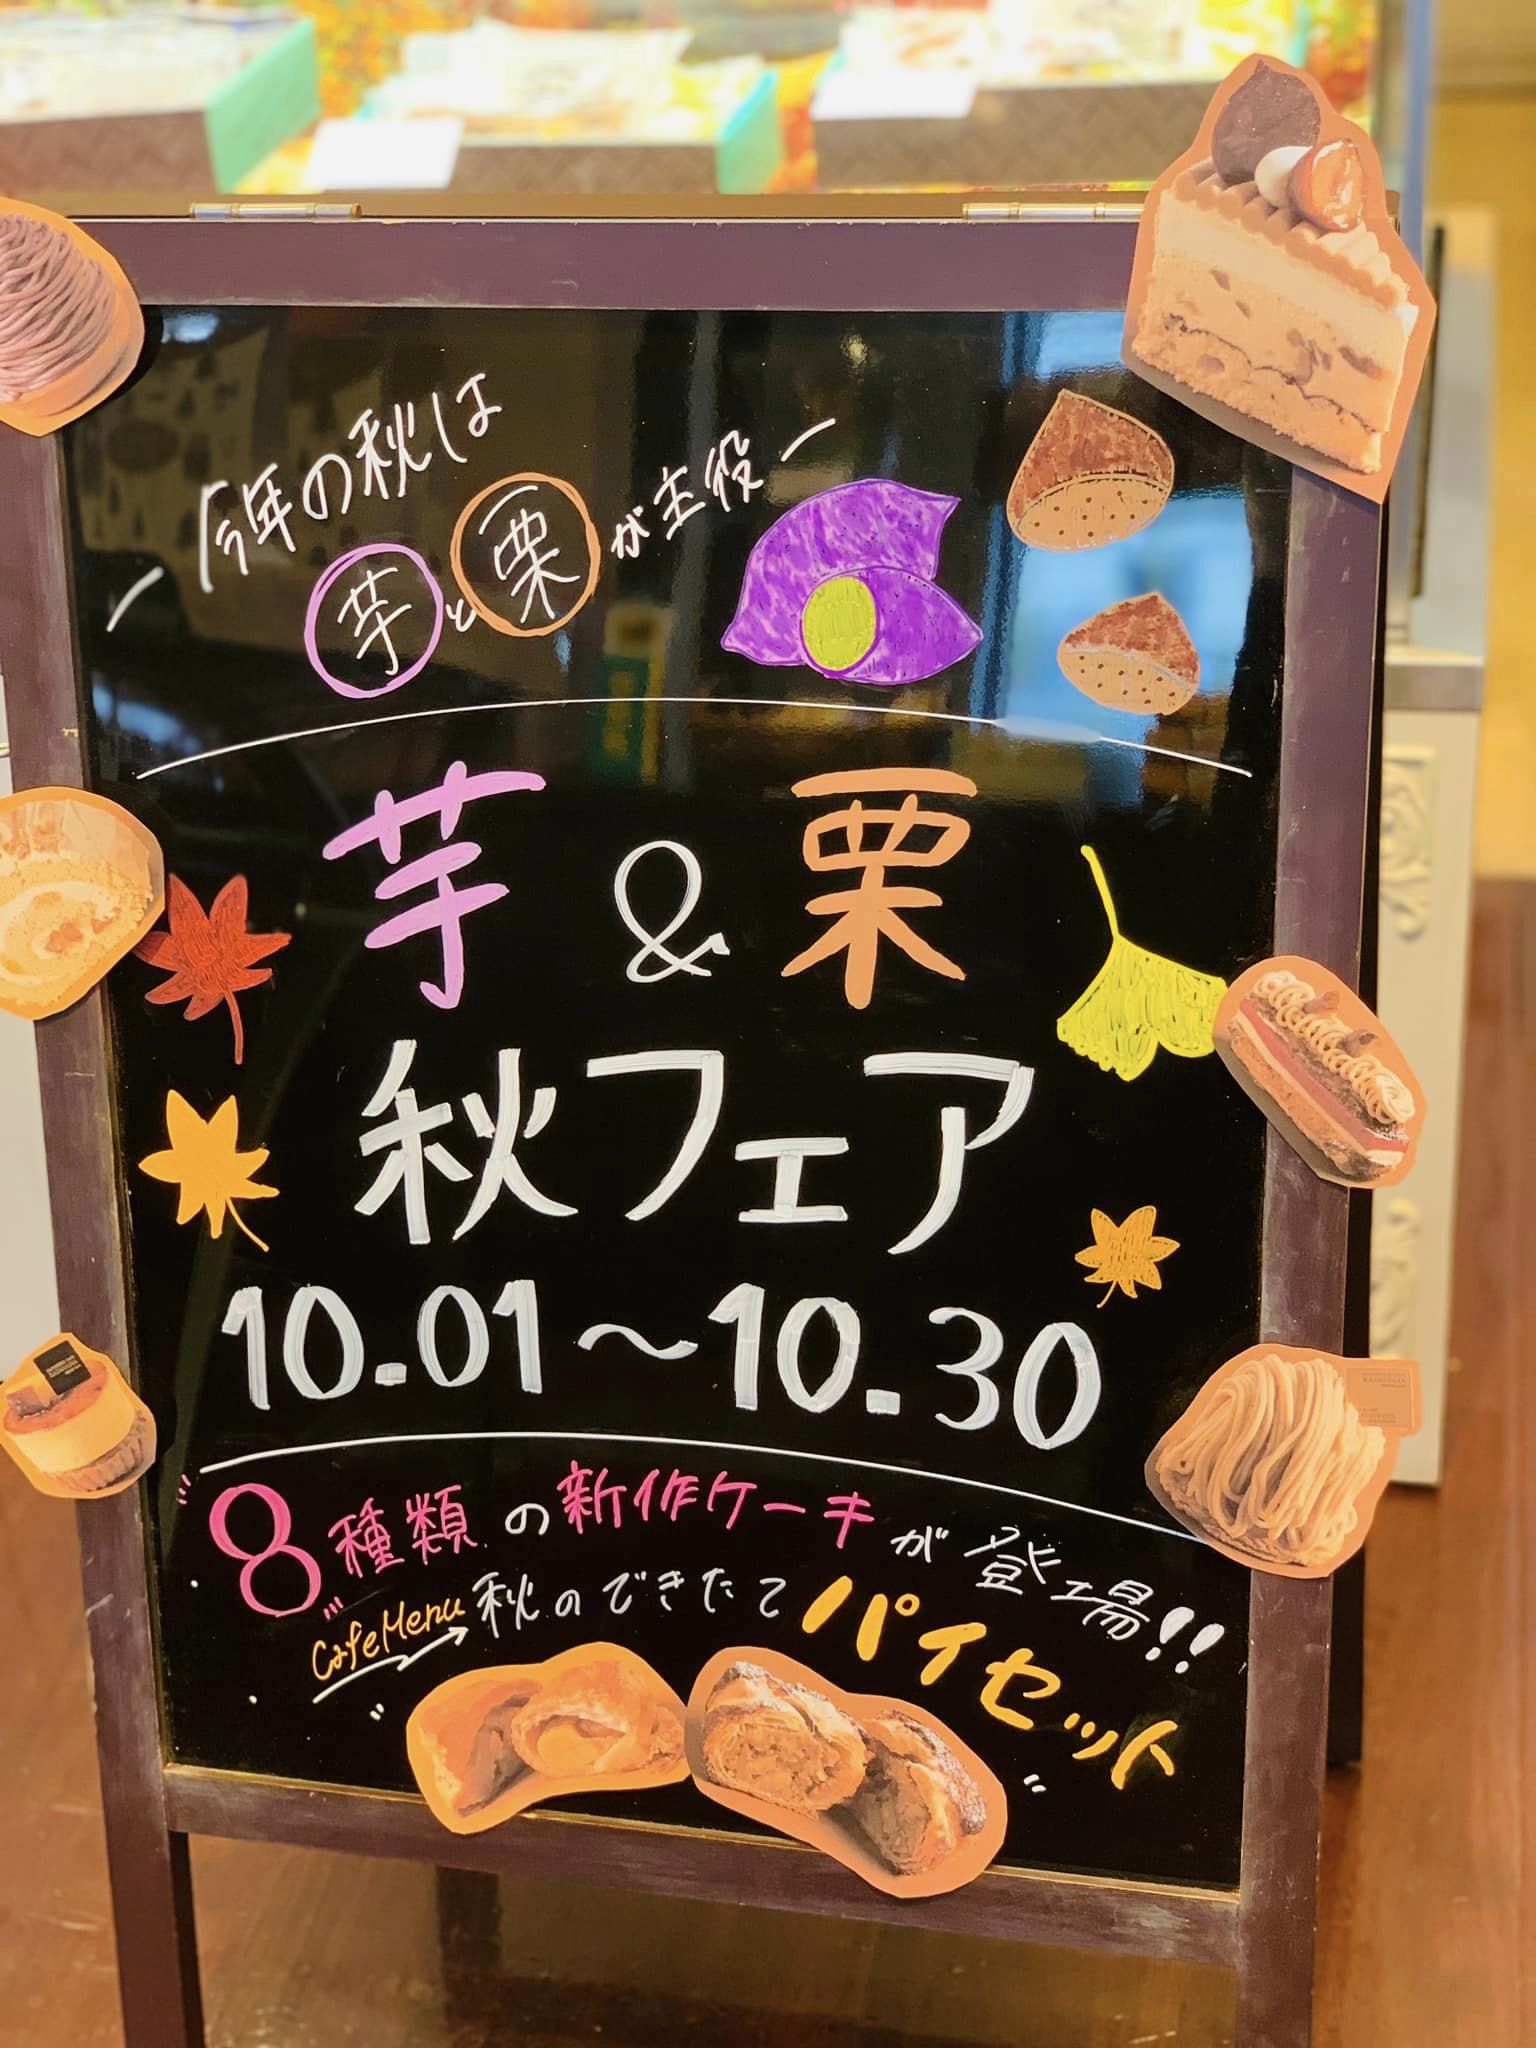 今年の秋は
芋と栗が主役
芋&栗
秋フェア
10.01〜10.30
8種類の新作ケーキが登場!!
CafeMenu 秋のできたてパイセット